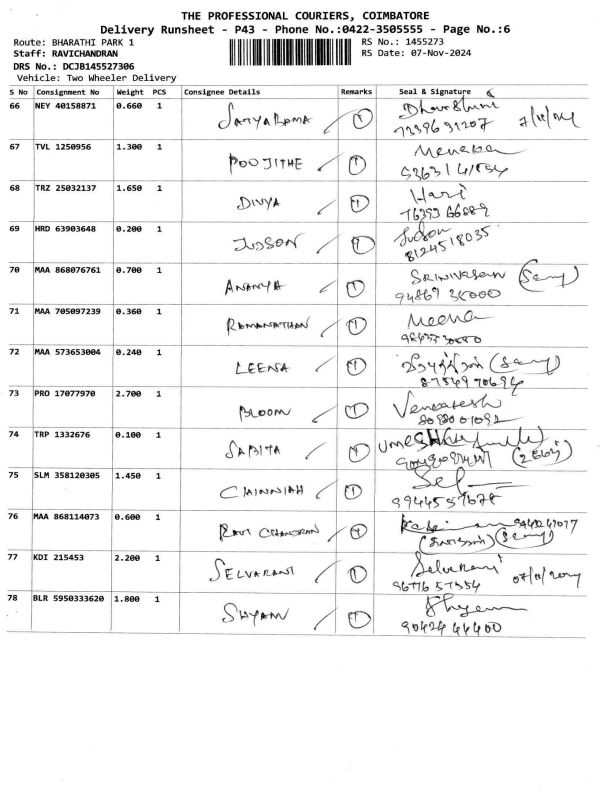 THE PROFESSIONAL COURIERS, COIMBATORE
Delivery Runsheet - P43 - Phone No.:0422-3505555 - Page No.:6
Route: BHARATHI PARK 1 RS No.: 1455273
Staff: RAVICHANDRAN RS Date: 07-Nov-2024
DRS No.: DCJB145527306
Vehicle: Two Wheeler Delivery
S No Consignment No Weight PCS Consignee Details Remarks Seal & Signature
66 NEY 40158871 0.660 1
SATYABAMA 1 7339631207 7/11/24
67 TVL 1250956 1.300 1
POOJITHE 1 Menaka
68 TRZ 25032137 1.650 1
DIVYA 1 Hari
7639366889
69 HRD 63903648 0.200 1
JUDSON 1 Judson
8124518035
70 MAA 868076761 0.700 1
ANANYA 1 SRINIVASAN
94869 35000
71 MAA 705097239 0.360 1
RAMANATHAN 1 Meena
72 MAA 573653004 0.240 1
LEENA 1
8754970694
73 PRO 17077970 2.700 1
BLOOM 1 Venkatesh
74 TRP 1332676 0.100 1
SABITA 1 UMESH
75 SLM 358120305 1.450 1
CHINNIAH 1
9944557678
76 MAA 868114073 0.600 1
RAVI CHANDRAN 1
77 KDI 215453 2.200 1
SELVARANI 1 Selvarani
9677657554 07/11/2024
78 BLR 5950333620 1.800 1
SHYAM 1 Shyam
90424 44400